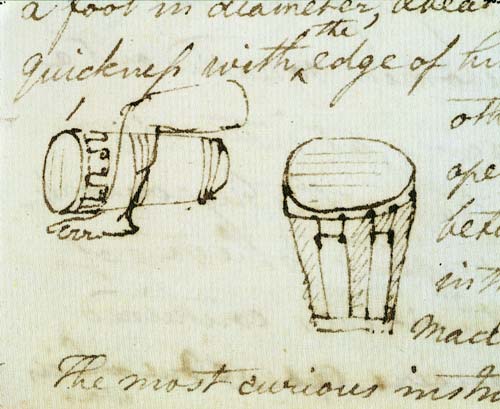 a foot in diameter,
the
quickness with ‸ edge of
oth
ope
in th
made
The most curious instr